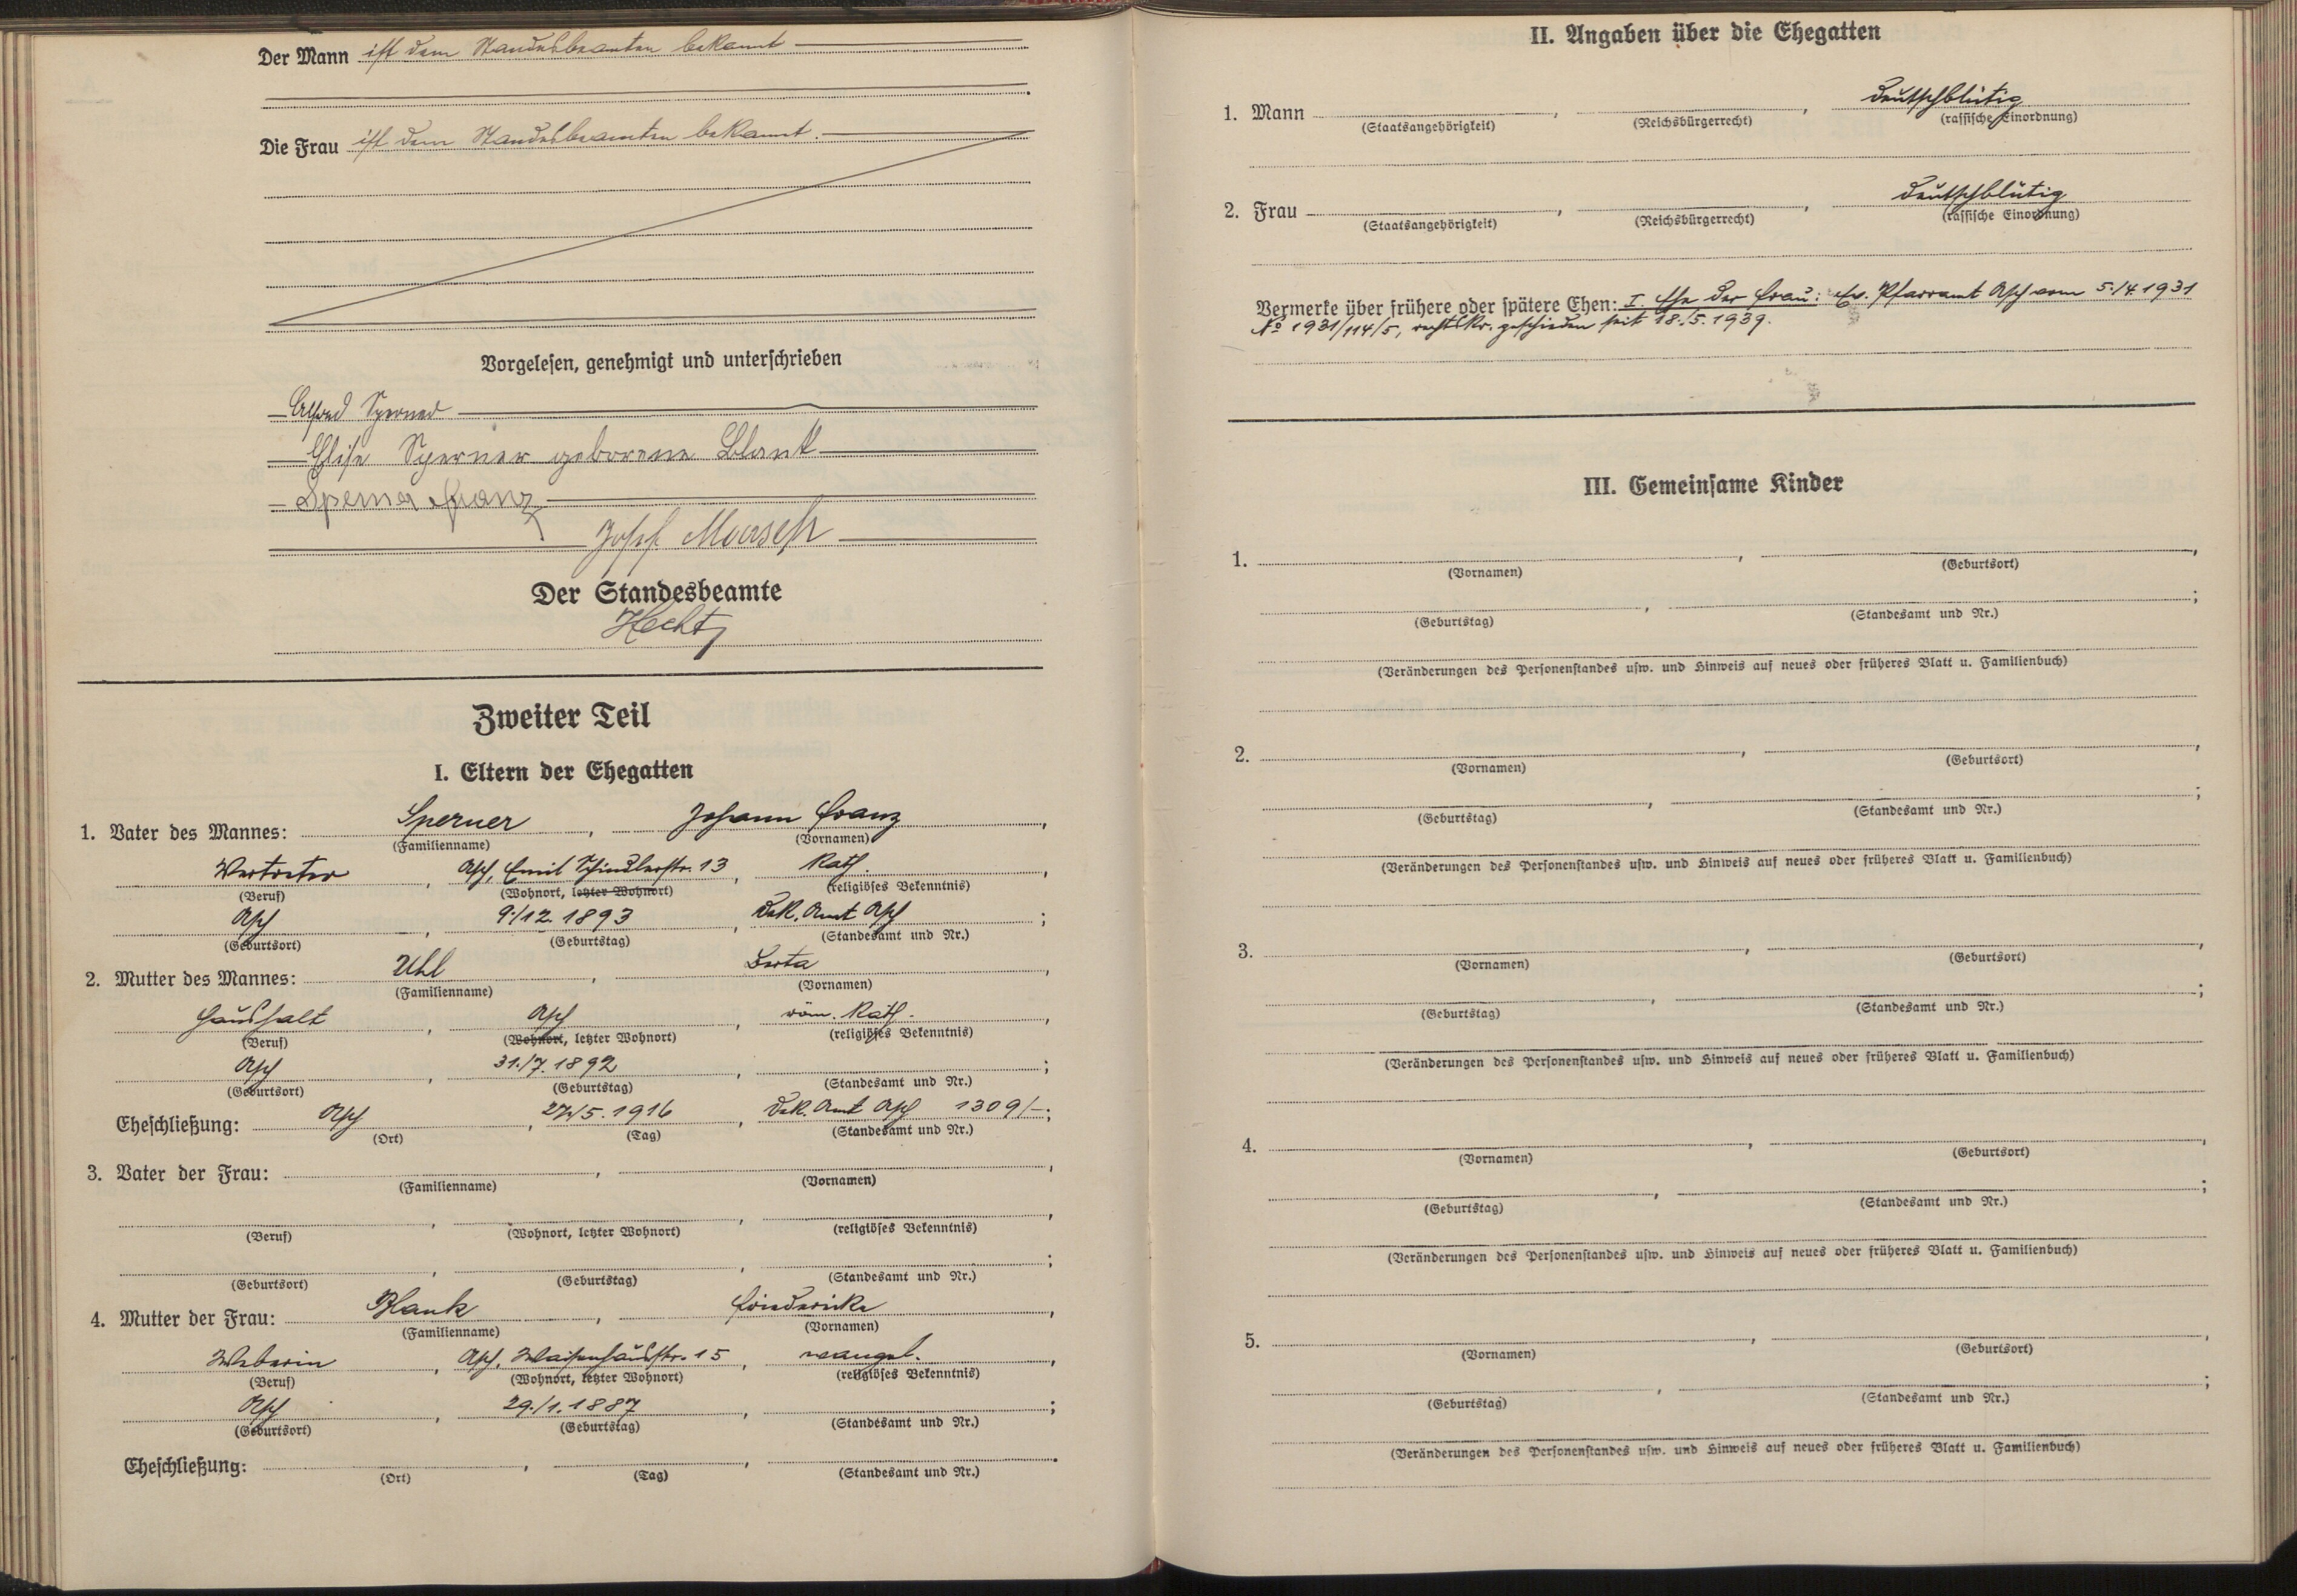 Der Mann ist dem Standesbeamten bekannt
Die Frau ist dem Standesbeamten bekannt.
Vorgelesen, genehmigt und unterschrieben
Alfred Sperner
Elise Sperner geborene Blank
Sperner Franz
Josef
Der Standesbeamte
Hecht
Zweiter Teil
I. Eltern der Ehegatten
1. Vater des Mannes: Sperner, Johann Franz,
(Familienname) (Vornamen)
Vertreter, Asch, Emil Schindlerstr. 13, kath.,
(Beruf) (Wohnort, letzter Wohnort) (religiöses Bekenntnis)
Asch, 9./12. 1893, Dek. Amt Asch;
(Geburtsort) (Geburtstag) (Standesamt und Nr.)
2. Mutter des Mannes: Uhl, Berta,
(Familienname) (Vornamen)
Haushalt, Asch, röm. kath.,
(Beruf) (Wohnort, letzter Wohnort) (religiöses Bekenntnis)
Asch, 31./7. 1892, ;
(Geburtsort) (Geburtstag) (Standesamt und Nr.)
Eheschließung: Asch, 27./5. 1916, Dek. Amt Asch 1309/–;
(Ort) (Tag) (Standesamt und Nr.)
3. Vater der Frau: , ,
(Familienname) (Vornamen)
, , ,
(Beruf) (Wohnort, letzter Wohnort) (religiöses Bekenntnis)
, , ;
(Geburtsort) (Geburtstag) (Standesamt und Nr.)
4. Mutter der Frau: Blank, Friederike,
(Familienname) (Vornamen)
Weberin, Asch, Waisenhausstr. 15, evangel.,
(Beruf) (Wohnort, letzter Wohnort) (religiöses Bekenntnis)
Asch, 29./1. 1887, ;
(Geburtsort) (Geburtstag) (Standesamt und Nr.)
Eheschließung: , , .
(Ort) (Tag) (Standesamt und Nr.)
II. Angaben über die Ehegatten
1. Mann , , deutschblütig
(Staatsangehörigkeit) (Reichsbürgerrecht) (rassische Einordnung)
2. Frau , , deutschblütig
(Staatsangehörigkeit) (Reichsbürgerrecht) (rassische Einordnung)
Vermerke über frühere oder spätere Ehen: I. Ehe der Frau: Ev. Pfarramt Asch vom 5./4. 1931
No 1931/114/5, rechtskr. geschieden seit 18./5. 1939.
III. Gemeinsame Kinder
1. , ,
(Vornamen) (Geburtsort)
, ;
(Geburtstag) (Standesamt und Nr.)
(Veränderungen des Personenstandes usw. und Hinweis auf neues oder früheres Blatt u. Familienbuch)
2. , ,
(Vornamen) (Geburtsort)
, ;
(Geburtstag) (Standesamt und Nr.)
(Veränderungen des Personenstandes usw. und Hinweis auf neues oder früheres Blatt u. Familienbuch)
3. , ,
(Vornamen) (Geburtsort)
, ;
(Geburtstag) (Standesamt und Nr.)
(Veränderungen des Personenstandes usw. und Hinweis auf neues oder früheres Blatt u. Familienbuch)
4. , ,
(Vornamen) (Geburtsort)
, ;
(Geburtstag) (Standesamt und Nr.)
(Veränderungen des Personenstandes usw. und Hinweis auf neues oder früheres Blatt u. Familienbuch)
5. , ,
(Vornamen) (Geburtsort)
, ;
(Geburtstag) (Standesamt und Nr.)
(Veränderungen des Personenstandes usw. und Hinweis auf neues oder früheres Blatt u. Familienbuch)